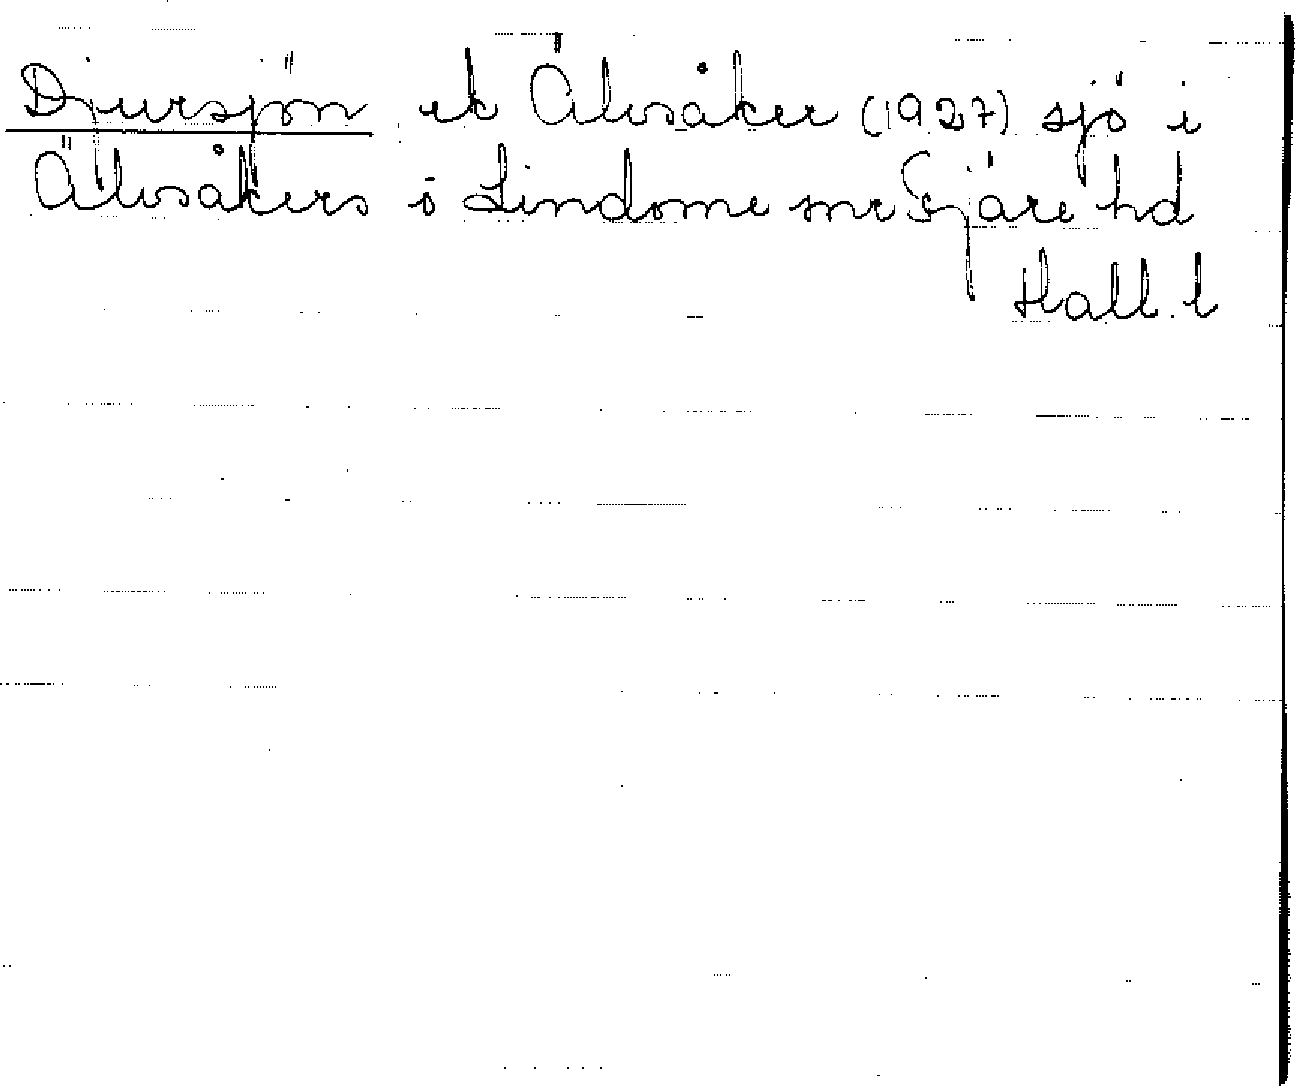 Djursjön ek Älvsåker (1927) sjö i
Älvsåkers o Lindome snr Fjäre hd
Hall. l